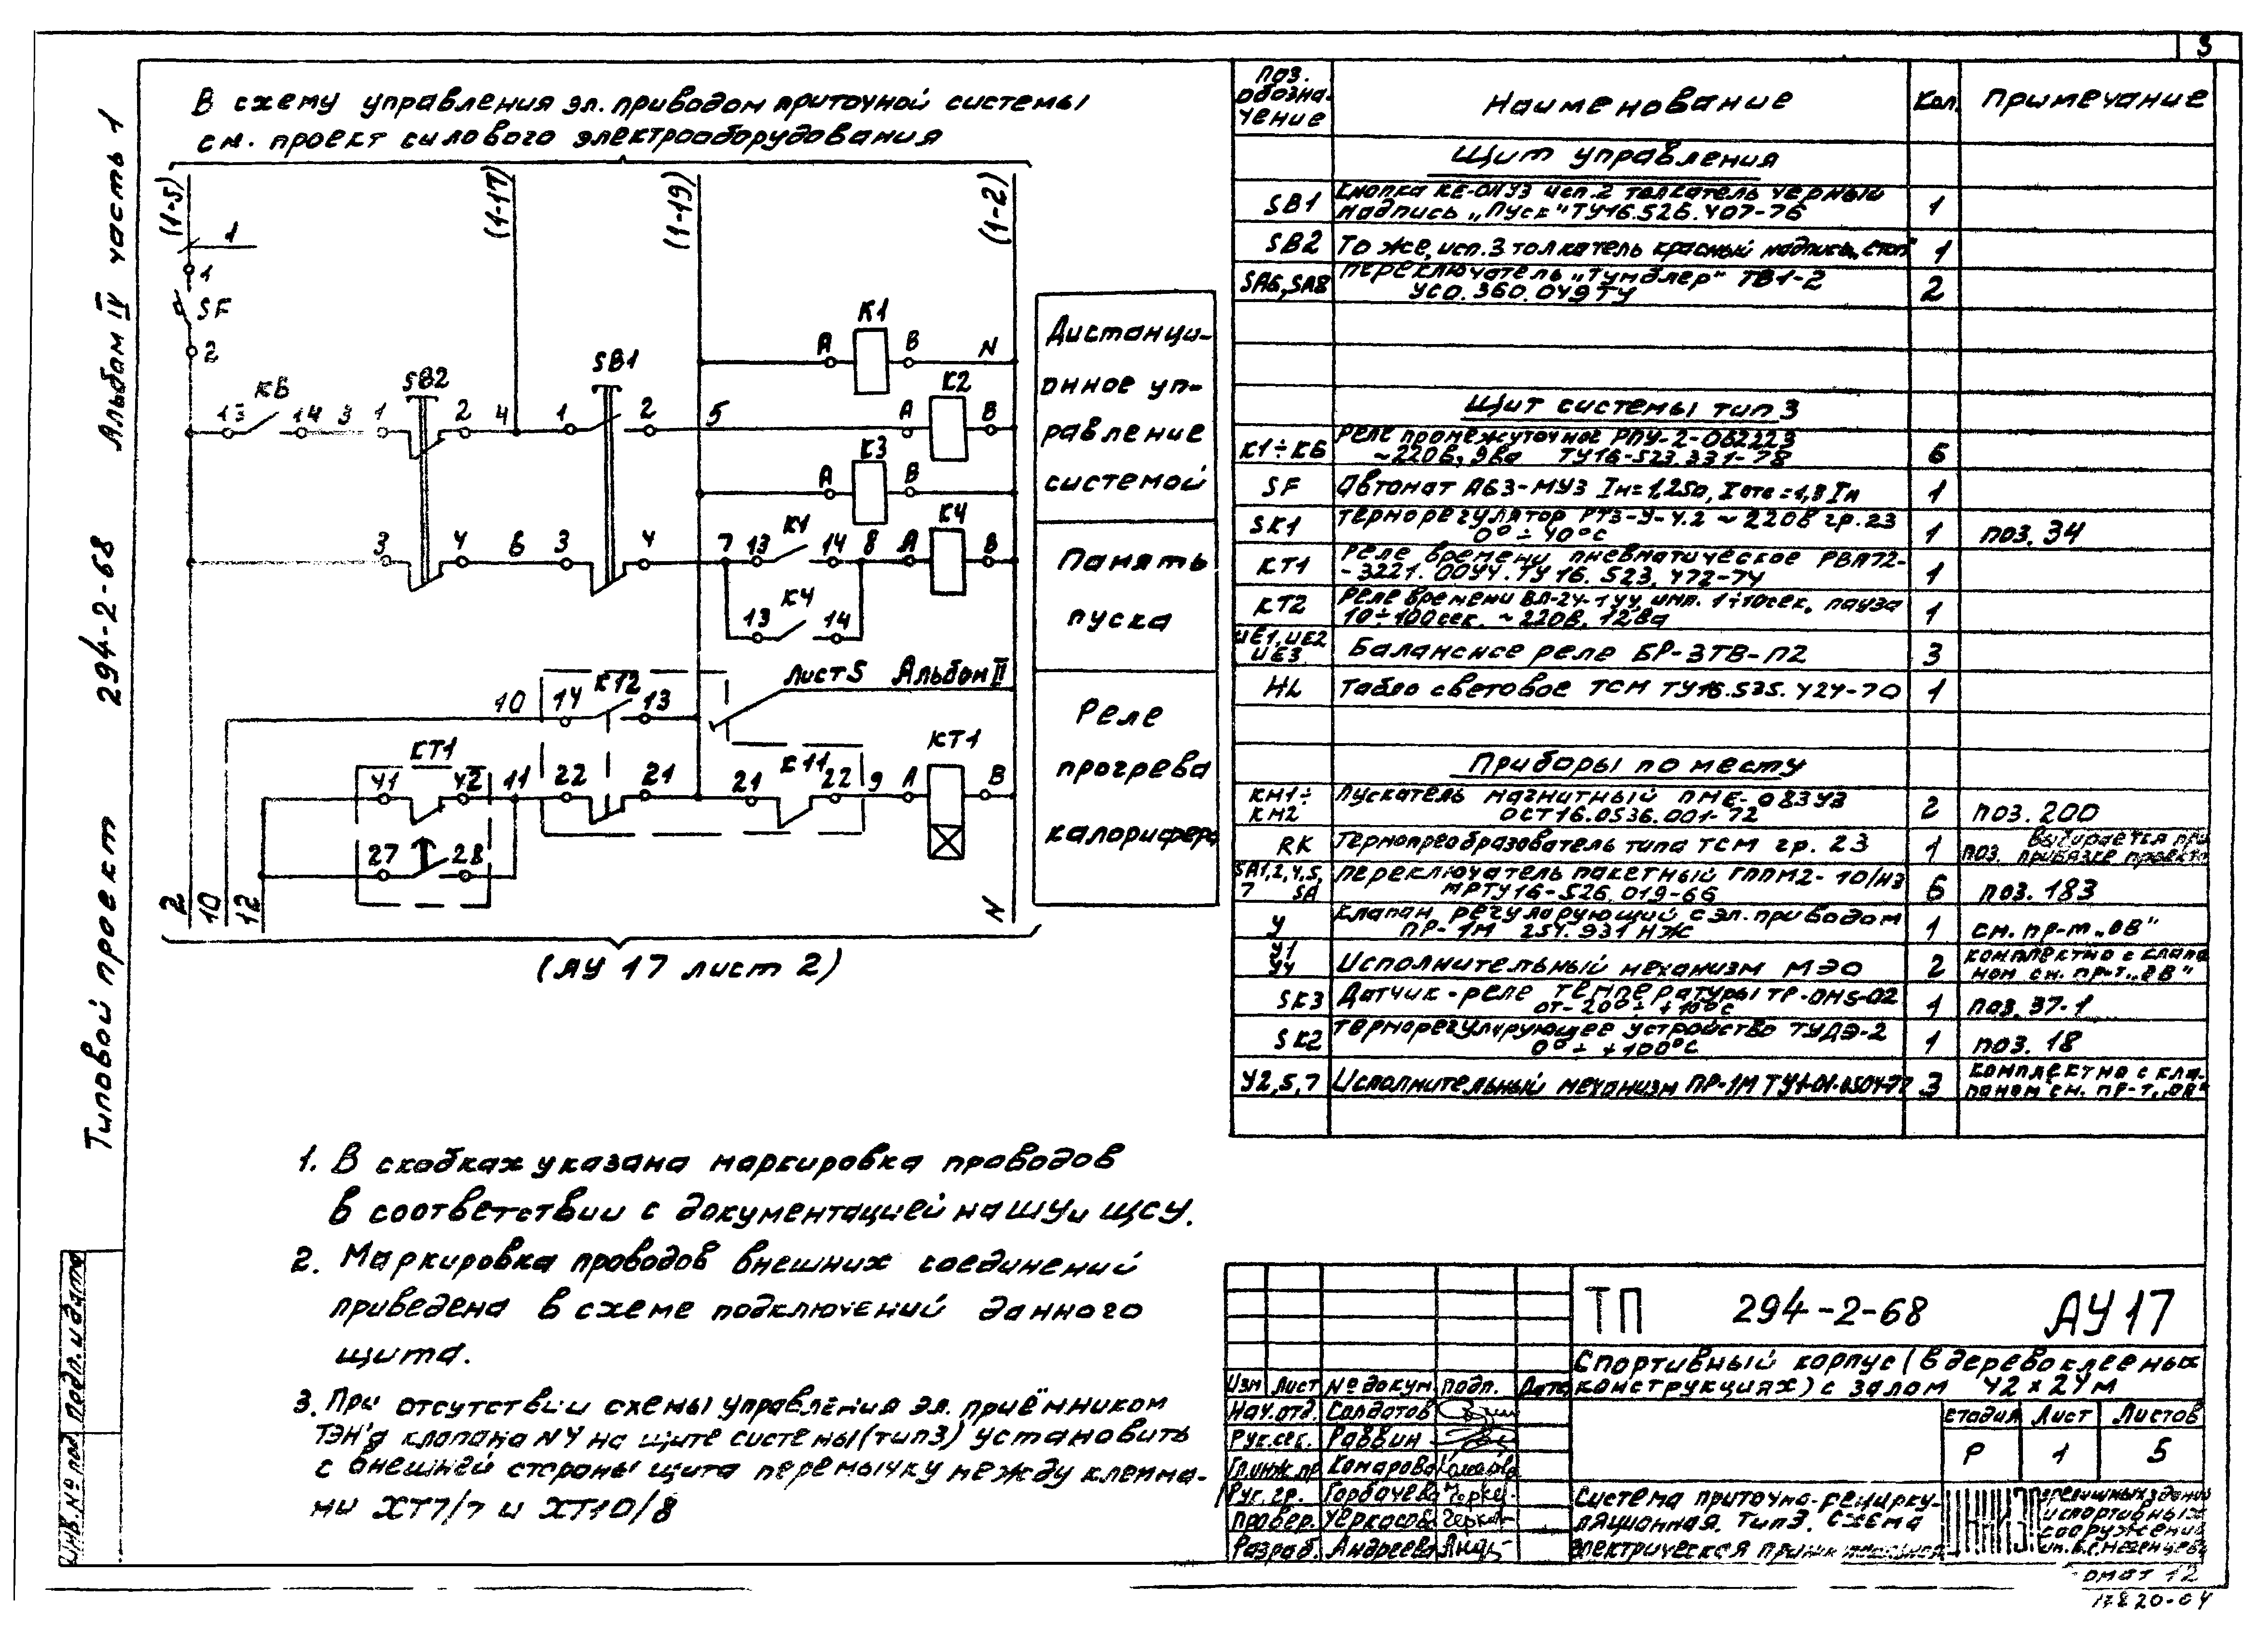 3
В схему управления эл. приводом приточной системы
см. проект силового электрооборудования
(1-5)
(1-17)
(1-19)
(1-2)
1
1
SF
2
K1
A
B
N
K2
SB1
SB2
КБ
13
14
3
1
2
4
1
2
5
A
B
K3
A
B
K4
3
4
6
3
4
7
13
K1
14
8
A
B
K4
13
14
Лист 5 Альбом II
10
14
KT2
13
KT1
41
42
11
22
21
21
K11
22
9
A
KT1
B
27
28
2
10
12
N
(АУ 17 лист 2)
Дистанци-
онное уп-
равление
системой
Память
пуска
Реле
прогрева
калорифера
Типовой проект 294-2-68 Альбом IV часть 1
Инв. № под. Подп. и дата
Поз. обозна-чение Наименование Кол. Примечание
Щит управления
SB1 Кнопка КЕ-011У3 исп. 2 толкатель черный
надпись „Пуск" ТУ16.526.407-76 1
SB2 То же, исп. 3 толкатель красный надпись „Стоп" 1
SA6, SA8 Переключатель „Тумблер" ТВ1-2
УСО.360.049ТУ 2
Щит системы тип 3
K1÷K6 Реле промежуточное РПУ-2-062223
~220В, 9ва ТУ16-523.331-78 6
SF Автомат А63-МУ3 Iн=1,25а, Iотс=1,3 Iн 1
SK1 Терморегулятор РТ3-У-4.2 ~220в гр. 23
0°÷40°С 1 поз. 34
KT1 Реле времени пневматическое РВП72-
-3221.00У4.ТУ16.523.472-74 1
KT2 Реле времени ВЛ-24-1У4, имп. 1÷10сек, пауза
10÷100сек. ~220В, 12Ва 1
UE1, UE2
UE3 Балансное реле БР-3ТВ-П2 3
HL Табло световое ТСМ ТУ16.535.424-70 1
Приборы по месту
KM1÷
KM2 Пускатель магнитный ПМЕ-083У3
ОСТ16.0536.001-72 2 поз. 200
RK Термопреобразователь типа ТСМ гр. 23 1 поз. Выбирается при
привязке проекта
SA1,2,4,5,
7 SA Переключатель пакетный ГППМ2-10/Н3
МРТУ16-526.019-66 6 поз. 183
У Клапан регулирующий с эл. приводом
ПР-1М 25ч.931НЖ 1 см. пр-т „ОВ"
У1
У4 Исполнительный механизм МЭО 2 Комплектно с клапа
ном см. пр-т „ОВ"
SK3 Датчик-реле температуры ТР-ОМ5-02
от -20°÷+10°С 1 поз. 37-1
SK2 Терморегулирующее устройство ТУДЭ-2
0°÷+100°С 1 поз. 18
У2,5,7 Исполнительный механизм ПР-1М 3 Комплектно с кла-
паном см. пр-т „ОВ"
1. В скобках указана маркировка проводов
в соответствии с документацией на ШУ и ЩСУ.
2. Маркировка проводов внешних соединений
приведена в схеме подключений данного
щита.
3. При отсутствии схемы управления эл. приёмником
ТЭН'а клапана №4 на щите системы (тип 3) установить
с внешней стороны щита перемычку между клемма-
ми ХТ7/7 и ХТ10/8
ТП 294-2-68 АУ17
Спортивный корпус (в деревоклееных
конструкциях) с залом 42×24м
Изм Лист № докум. подп. Дата
Нач. отд. Солдатов
Рук. сек. Раввин
Гл. инж. пр. Комарова
Рук. гр. Горбачева
Провер. Черкасова
Разраб. Андреева
Стадия Лист Листов
Р 1 5
Система приточно-рецирку-
ляционная. Тип 3. Схема
электрическая принципиальная
зрелищных зданий
и спортивных
сооружений
им. Б.С. Мезенцева
Формат 12
17820-04